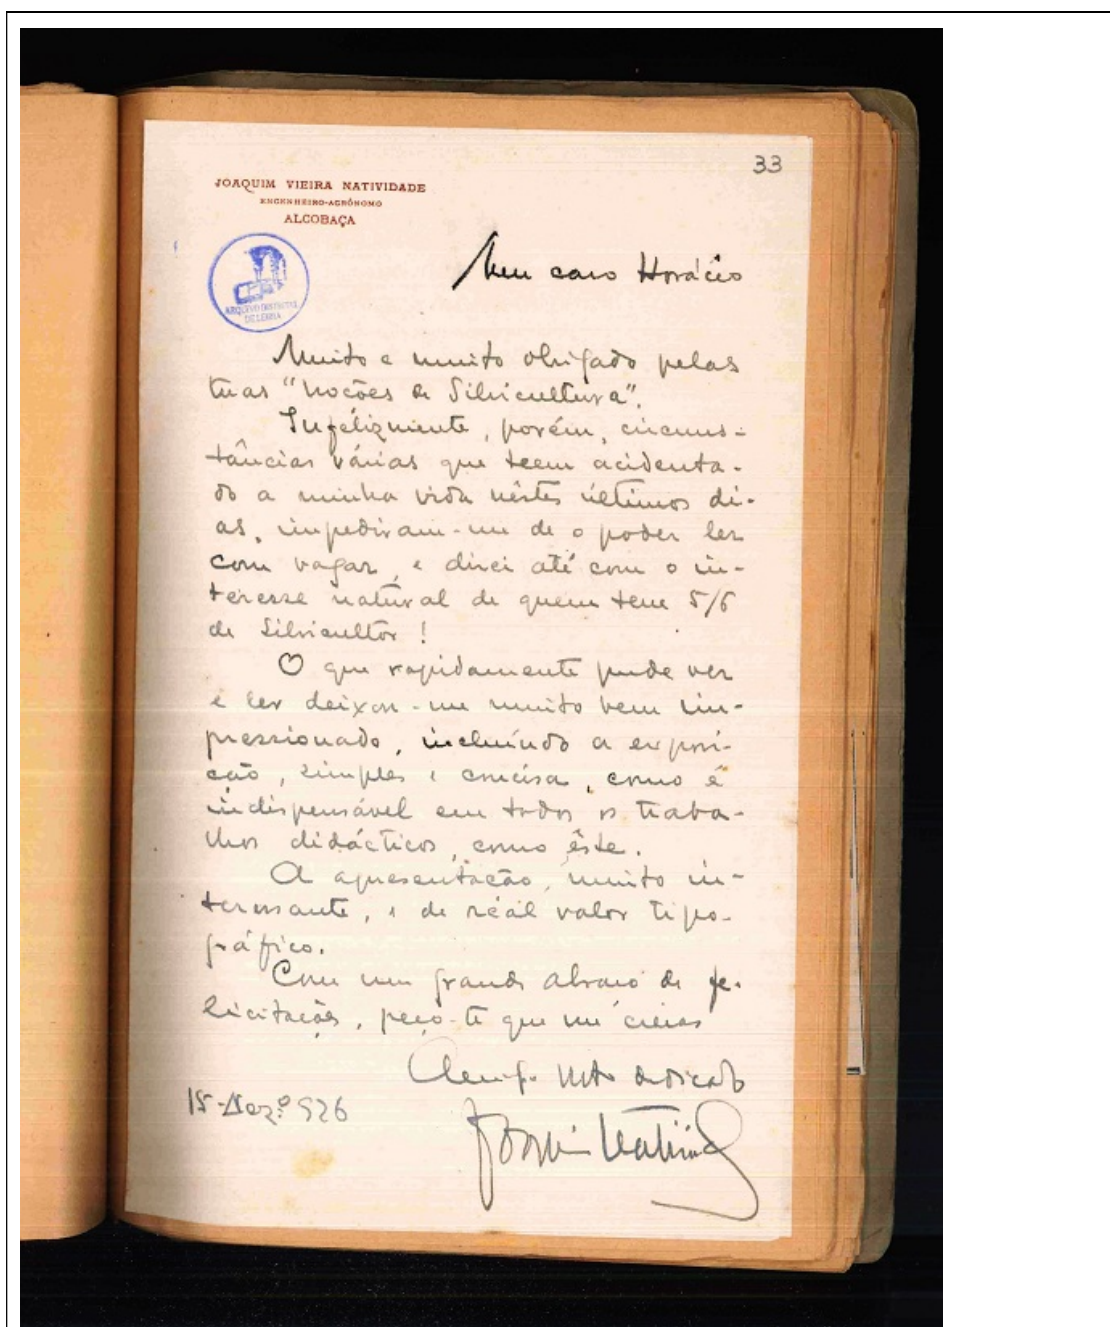 33
JOAQUIM VIEIRA NATIVIDADE
ENGENHEIRO-AGRÓNOMO
ALCOBAÇA
ARQUIVO DISTRITAL
DE LEIRIA
Meu caro Horácio
Muito e muito obrigado pelas
tuas "Noções de Silvicultura".
Infelizmente, porém, circuns-
tâncias várias que teem acidenta-
do a minha vida nêstes últimos di-
as, impediram-me de o poder ler
com vagar, e direi até com o in-
teresse natural de quem tem 5/6
de Silvicultor!
O que rapidamente pude ver
e ler deixou-me muito bem im-
pressionado, incluíndo a exposi-
ção, simples e concisa, como é
indispensável em todos os traba-
lhos didácticos, como êste.
A apresentação, muito in-
teressante, e de réal valor tipo-
gráfico.
Com um grande abraço de fe-
licitações, peço-te que me creias
Amigo Mto dedicado
15-Dez.º 926
Joaquim Natividade